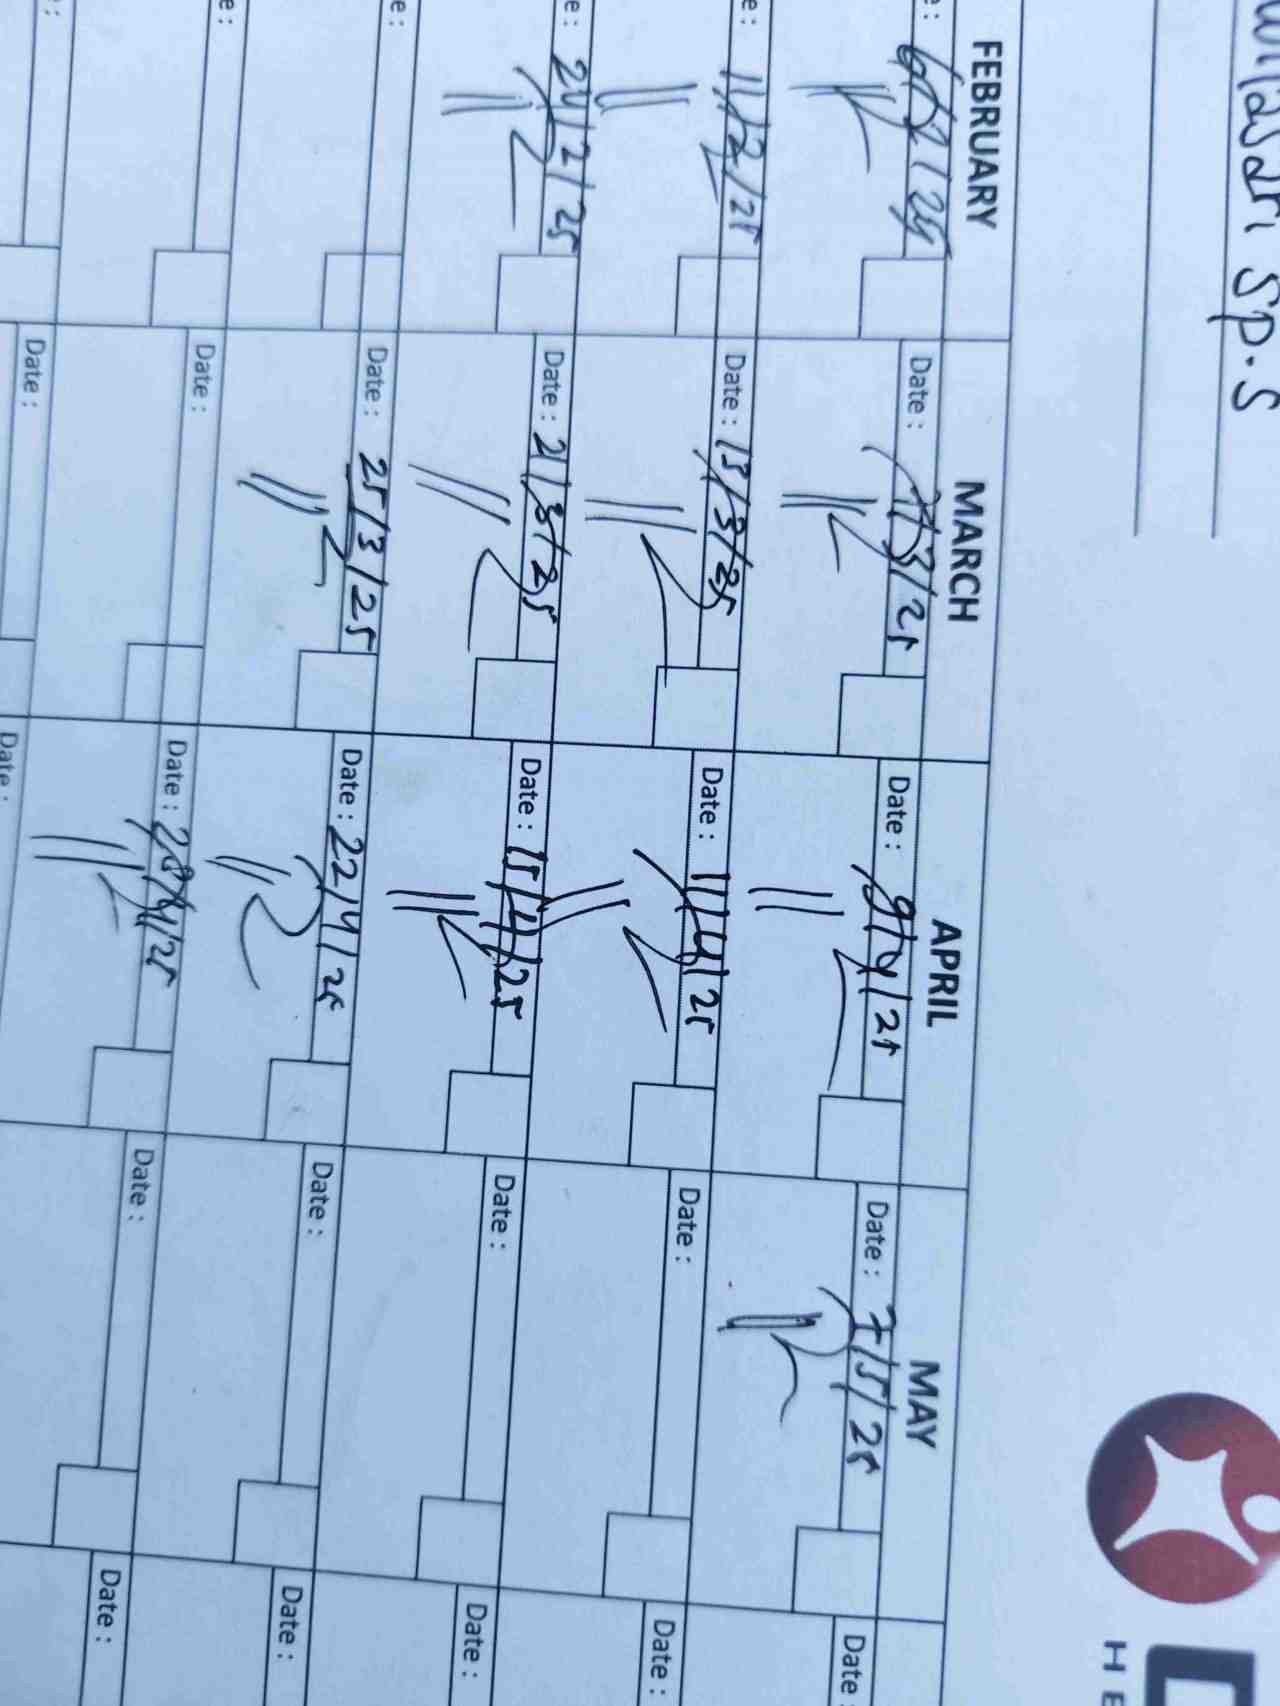 Sp.S
FEBRUARY MARCH APRIL MAY
e: 6/2/25 Date: 7/3/25 Date: 9/4/25 Date: 7/5/25 Date
e: 11/2/25 Date: 13/3/25 Date: 11/4/25 Date: Date:
e: 20/2/25 Date: 21/3/25 Date: 15/4/25 Date: Date:
e: Date: 25/3/25 Date: 22/4/25 Date: Date:
e: Date: Date: 28/4/25 Date: Date:
e: Date: Date:
HE